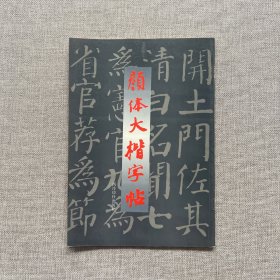 開土門佐其
清白名聞七
顔体大楷字帖
為憲官九為
省官荐為節